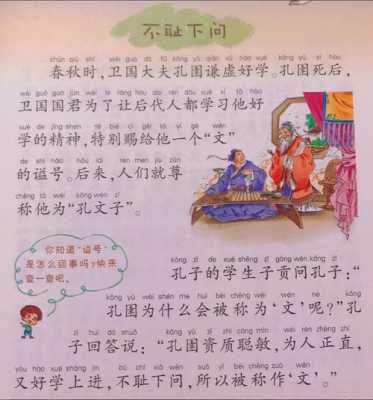 不耻下问
chūn qiū shí wèi guó dà fū kǒng yǔ qiān xū hào xué kǒng yǔ sǐ hòu
春秋时，卫国大夫孔圉谦虚好学。孔圉死后，
wèi guó guó jūn wèi le ràng hòu dài rén dōu xué xí tā hào
卫国国君为了让后代人都学习他好
xué de jīng shén tè bié cì gěi tā yí gè wén
学的精神，特别赐给他一个“文”
de shì hào hòu lái rén men jiù zūn
的谥号。后来，人们就尊
chēng tā wéi kǒng wén zǐ
称他为“孔文子”。
你知道“谥号”
是怎么回事吗？快来
查一查吧。
kǒng zǐ de xué shēng zǐ gòng wèn kǒng zǐ
孔子的学生子贡问孔子：“
kǒng yǔ wèi shén me huì bèi chēng wéi wén ne kǒng
孔圉为什么会被称为‘文’呢？”孔
zǐ huí dá shuō kǒng yǔ zī zhì cōng mǐn wéi rén zhèng zhí
子回答说：“孔圉资质聪敏，为人正直，
yòu hào xué shàng jìn bù chǐ xià wèn suǒ yǐ bèi chēng zuò wén
又好学上进，不耻下问，所以被称作‘文’。”